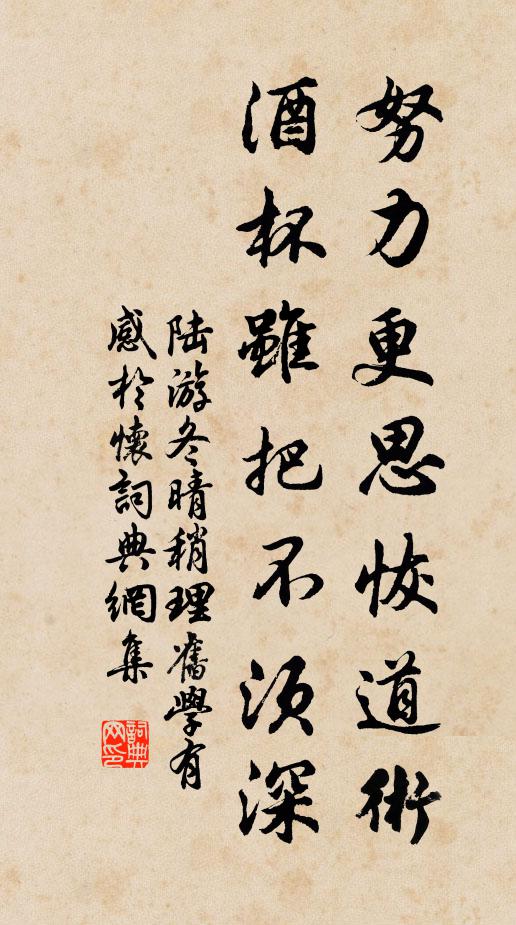 努力更思恢道術
酒杯雖把不須深
陆游冬晴稍理舊學有
感於懷詞典網集
詞典網印